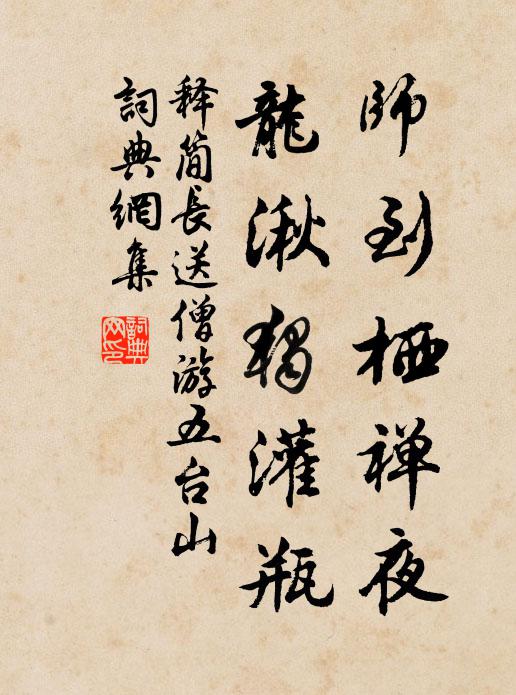 師到栖禅夜
龍湫獨灌瓶
释简長送僧游五台山
詞典網集
詞典网印